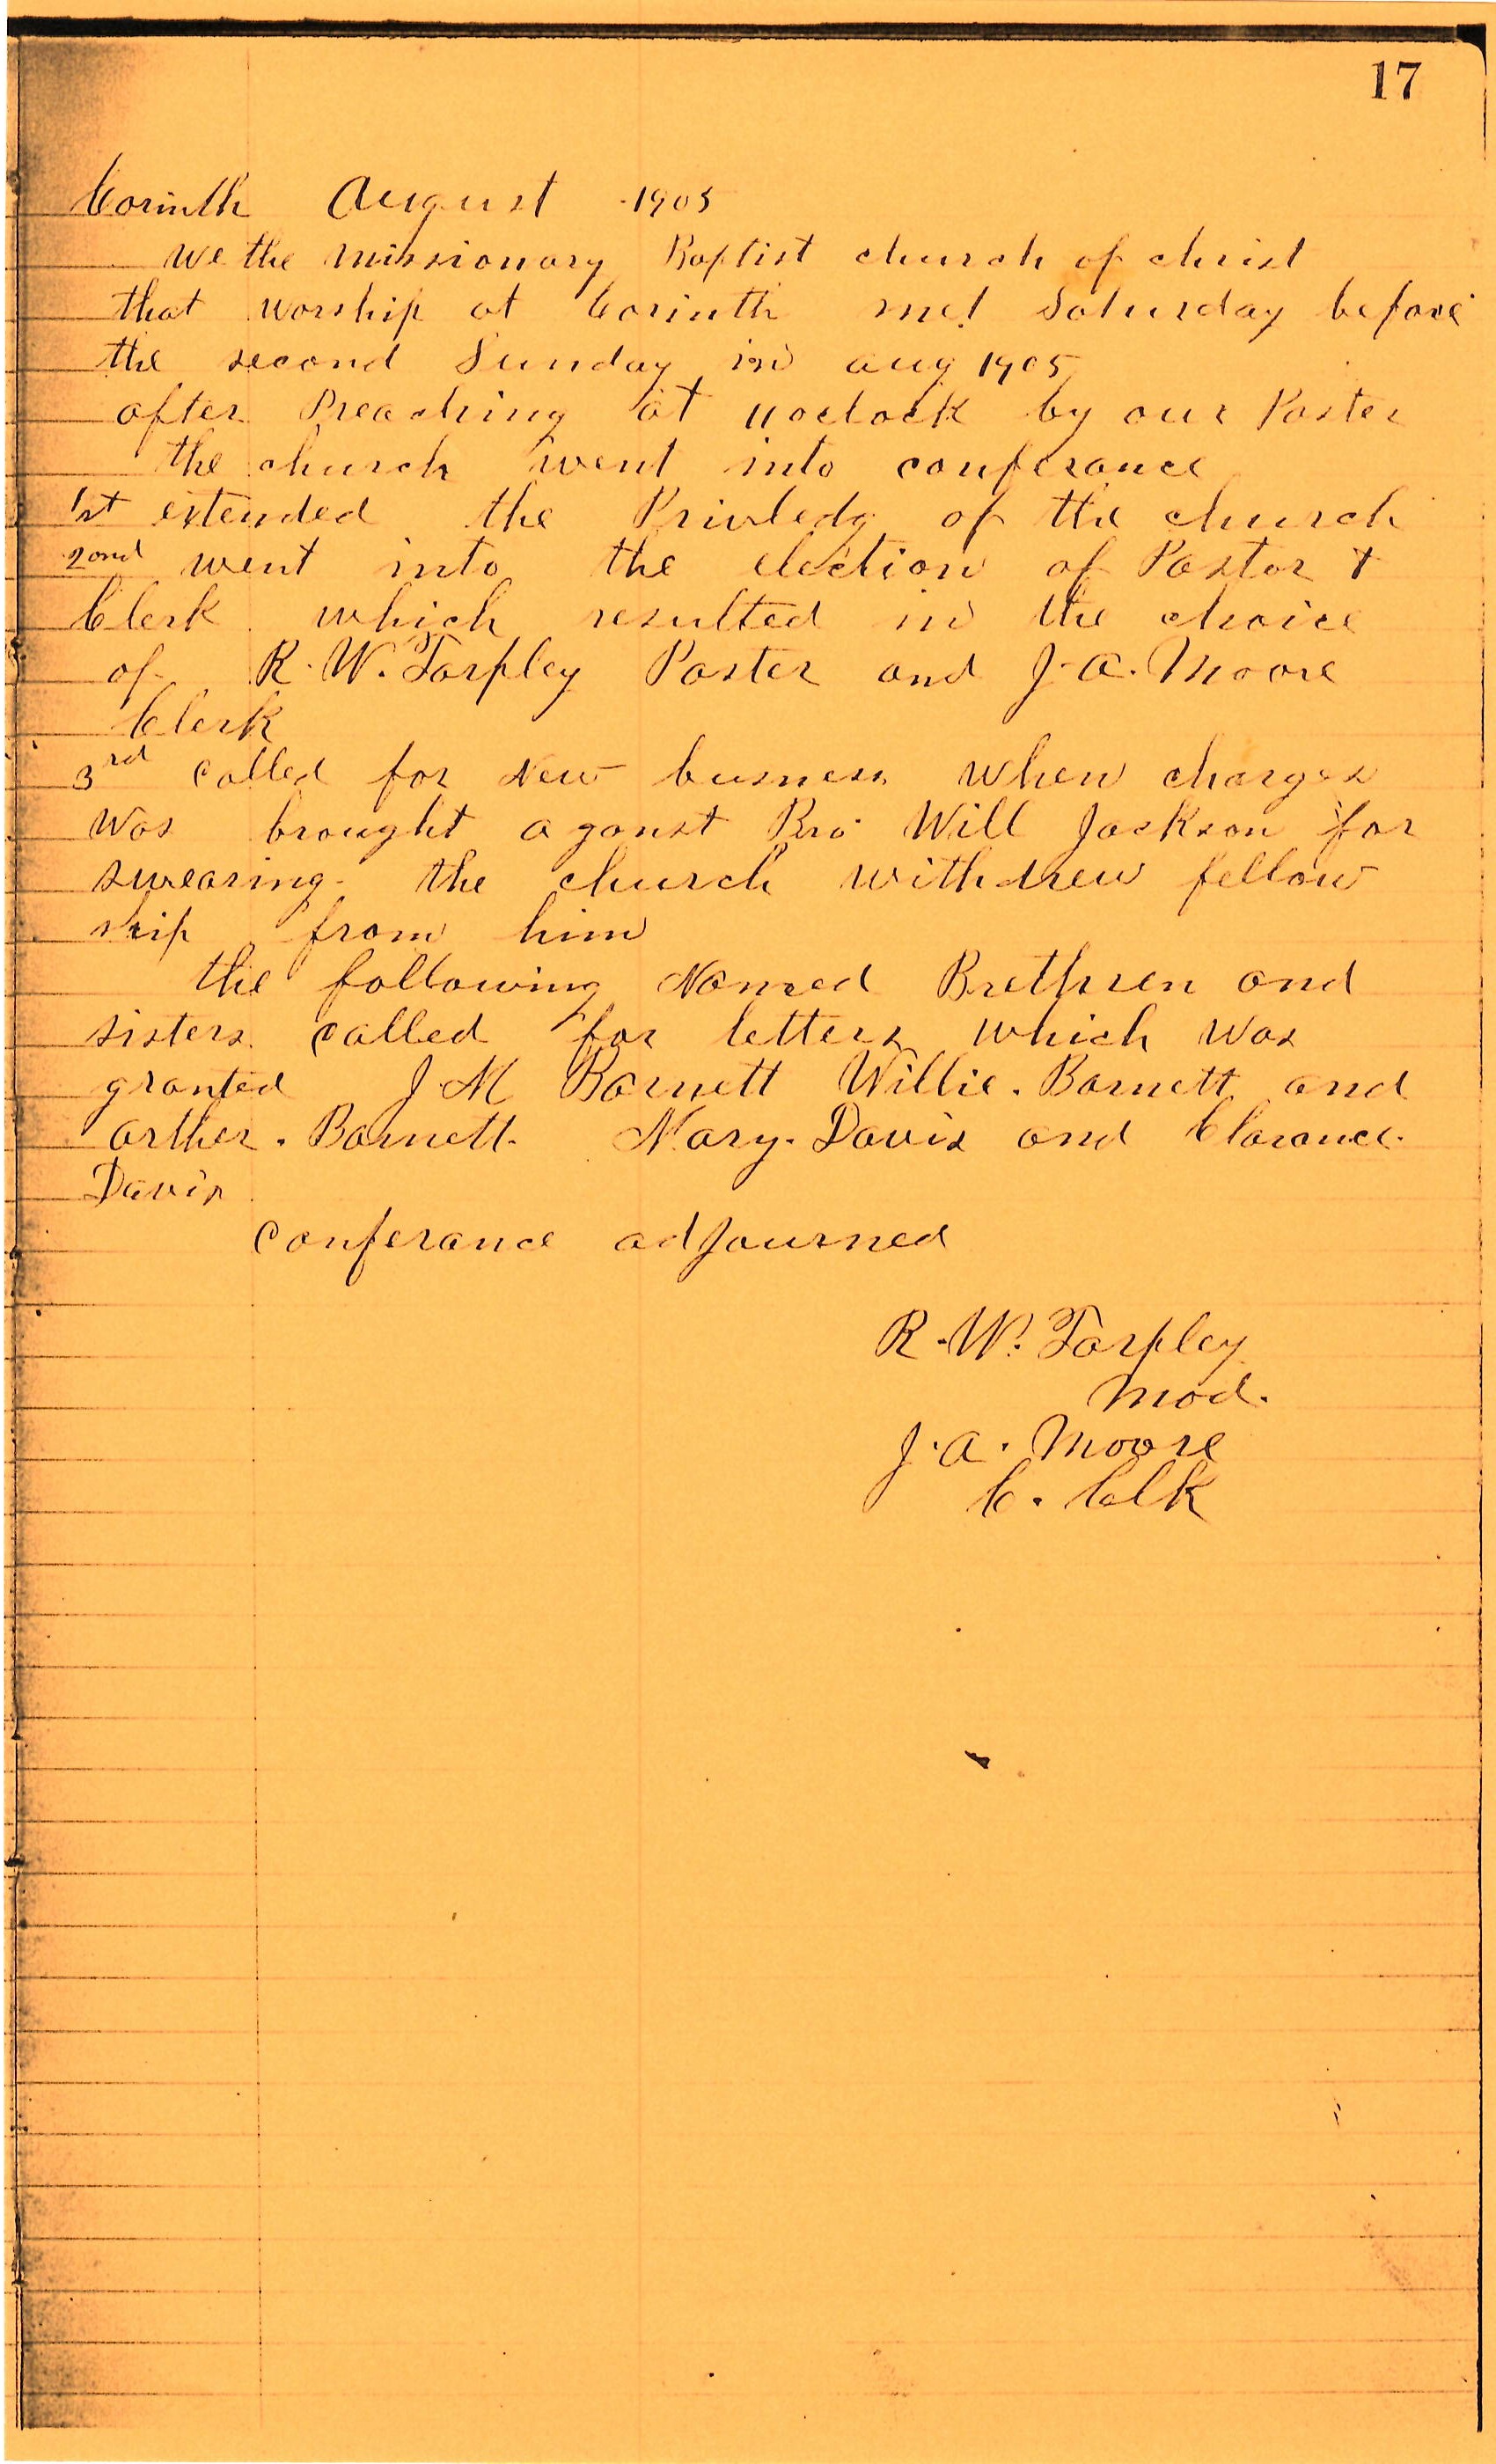 17
Corinth August 1905
We the missionary Baptist church of christ
that worship at Corinth met Saturday before
the second Sunday in aug 1905
after Preaching at 11 oclock by our Paster
the church went into conferance
1st extended the Privledg of the church
2ond went into the election of Pastor +
Clerk which resulted in the choice
of R. W. Tarpley Paster and J. A. Moore
Clerk
3rd called for New busness when charges
was brought aganst Bro Will Jackson for
swearing. the church withdrew fellow
ship from him
the following Named Brethren and
sisters called for letters which was
granted J. M Barnett Willie. Barnett and
arther. Barnett. Mary. Davis and Clarance.
Davis
Conferance adjourned
R. W. Tarpley
Mod.
J. A. Moore
C. Clk